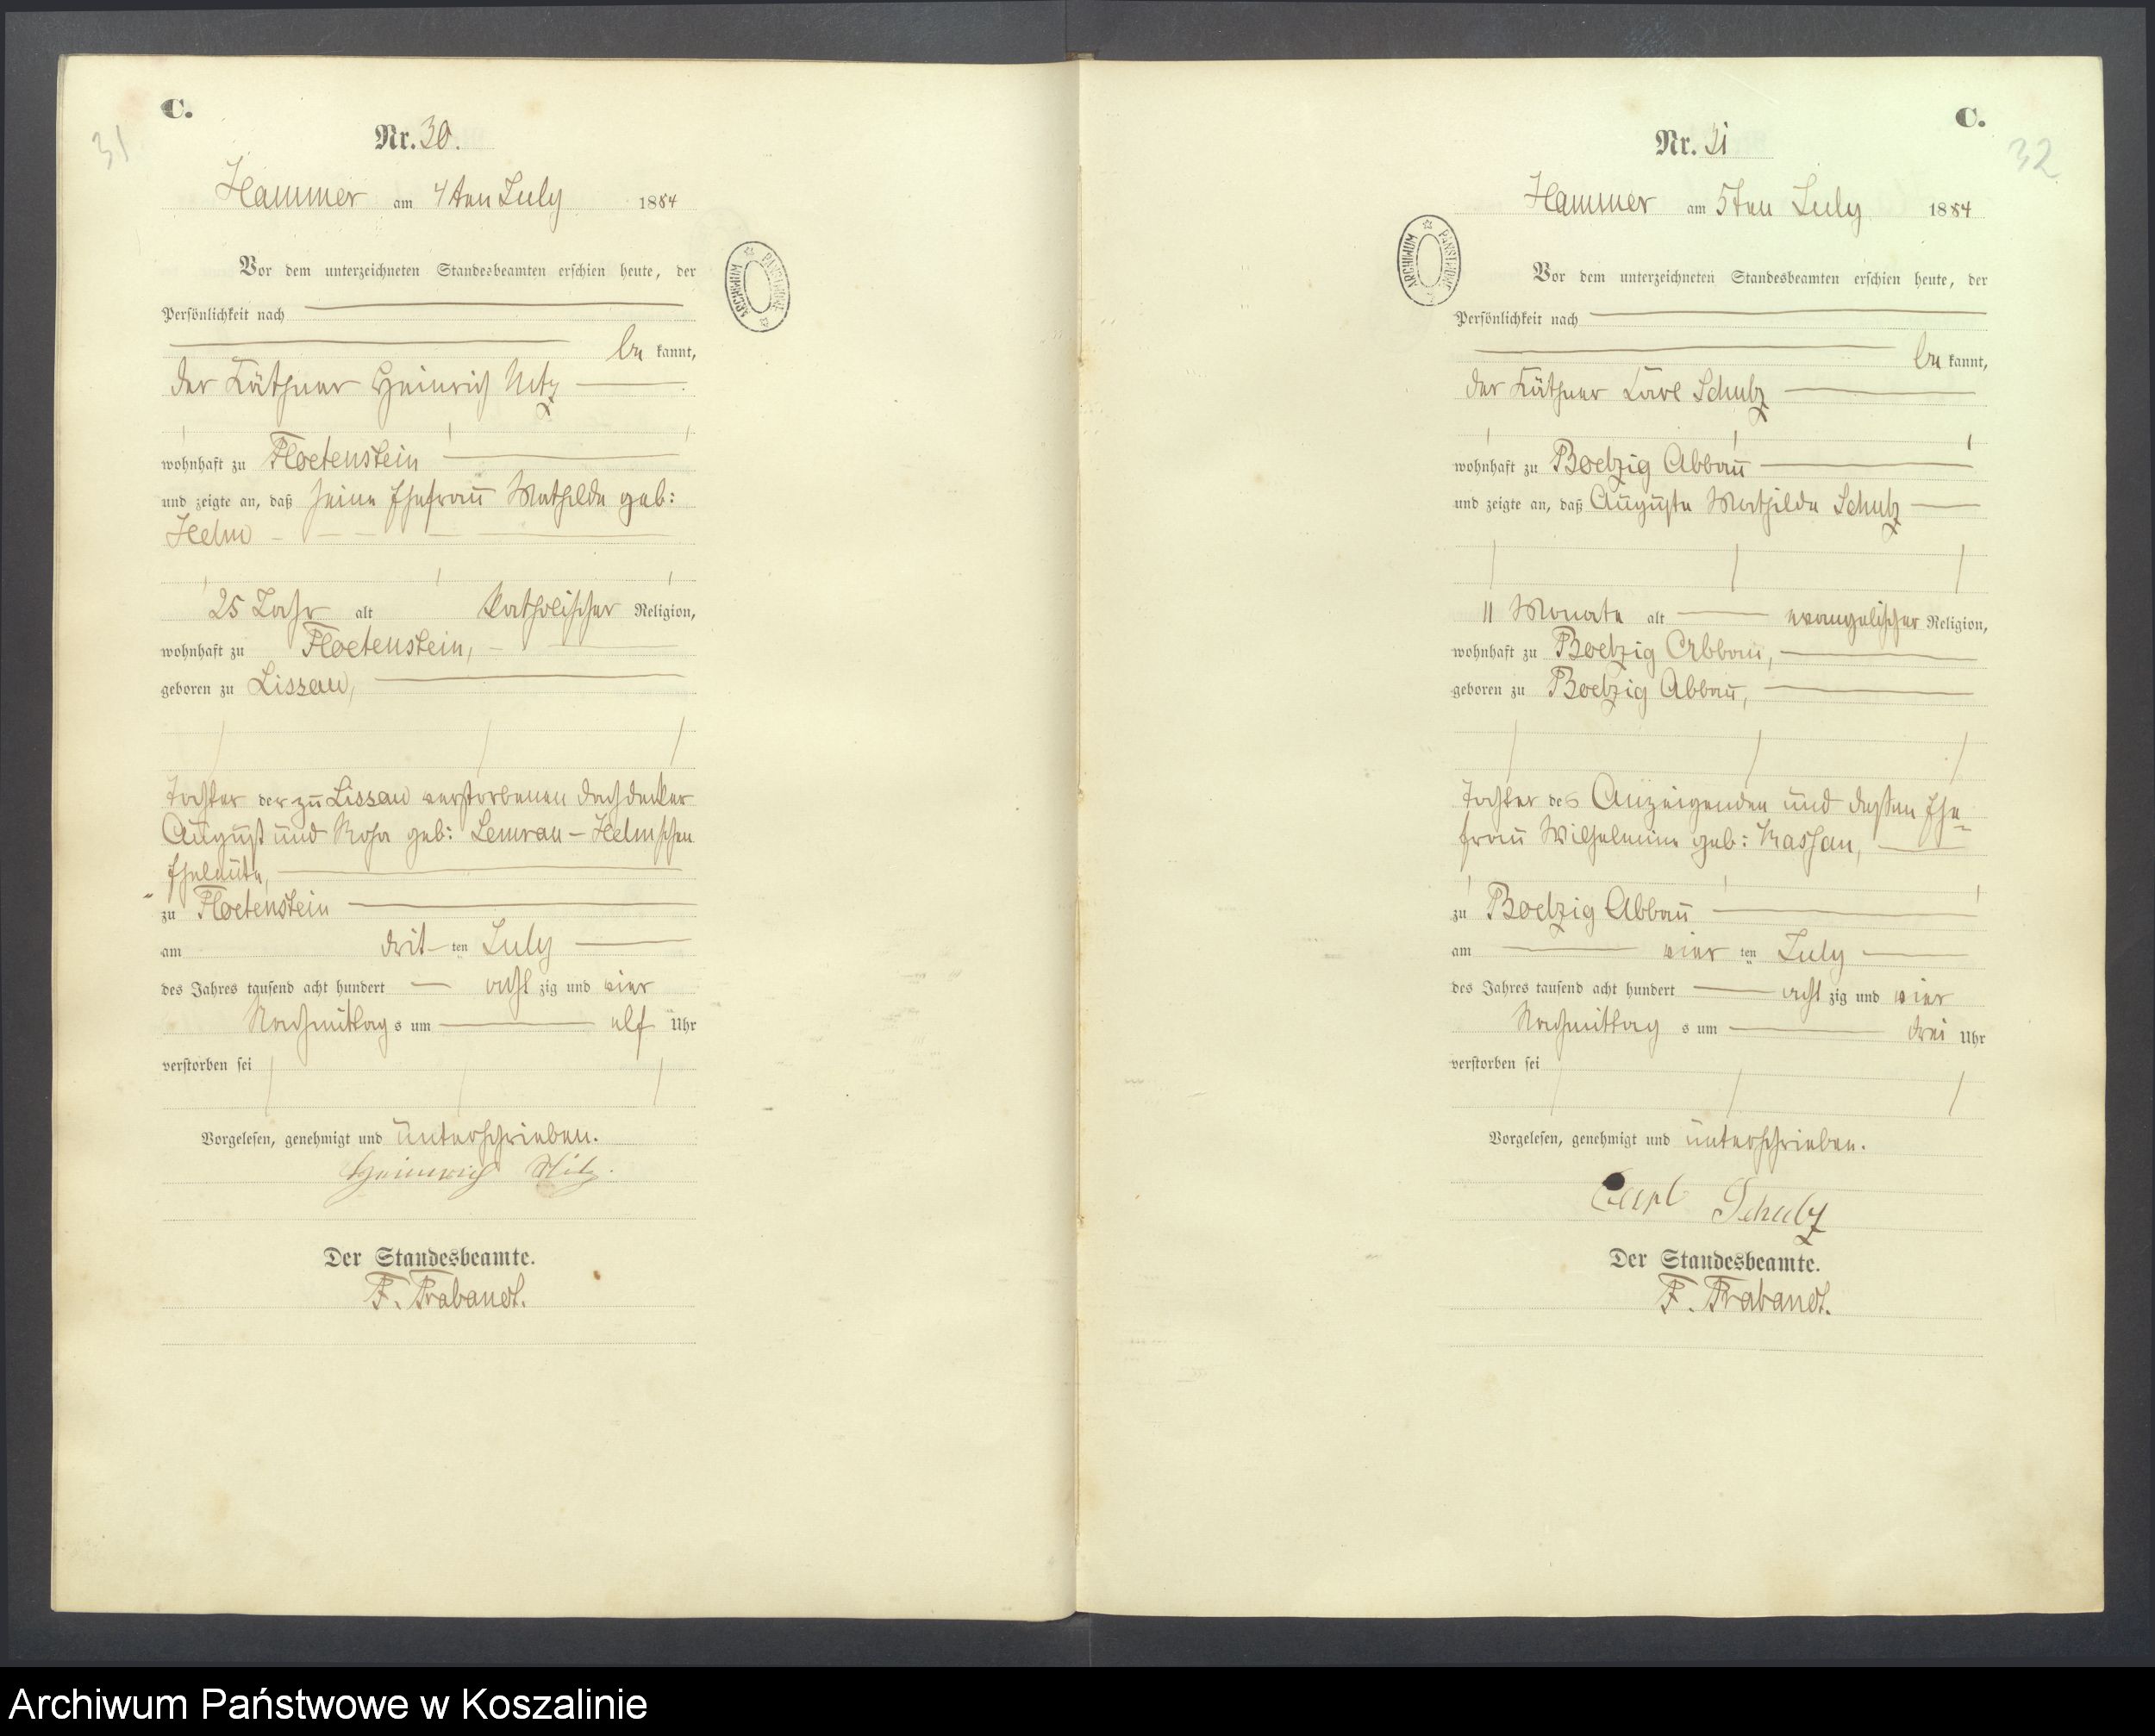 C.
31
Nr. 30.
Hammer am 4ten July 1884
Vor dem unterzeichneten Standesbeamten erschien heute, der
Persönlichkeit nach
be kannt,
der Käthner Heinrich
wohnhaft zu Floetenstein
und zeigte an, daß seine Ehefrau Mathilde geb:
Helm
25 Jahr alt katholischer Religion,
wohnhaft zu Floetenstein,
geboren zu Lissau,
Tochter der zu Lissau verstorbenen Dachdecker
August und Rosa geb: – Helmschen
Eheleute,
zu Floetenstein
am drit ten July
des Jahres tausend acht hundert acht zig und vier
Nachmittag s um elf Uhr
verstorben sei
Vorgelesen, genehmigt und unterschrieben.
Heinrich
Der Standesbeamte.
F. Brabandt.
ARCHIWUM PAŃSTWOWE
C.
32
Nr. 31
Hammer am 5ten July 1884
ARCHIWUM PAŃSTWOWE
Vor dem unterzeichneten Standesbeamten erschien heute, der
Persönlichkeit nach
be kannt,
der Käthner Carl Schulz
wohnhaft zu Boelzig Abbau
und zeigte an, daß Auguste Mathilde Schulz
11 Monate alt evangelischer Religion,
wohnhaft zu Boelzig Abbau,
geboren zu Boelzig Abbau,
Tochter des Anzeigenden und dessen Ehe-
frau Wilhelmine geb:
zu Boelzig Abbau
am vier ten July
des Jahres tausend acht hundert acht zig und vier
Nachmittag s um drei Uhr
verstorben sei
Vorgelesen, genehmigt und unterschrieben.
Carl Schulz
Der Standesbeamte.
F. Brabandt.
Archiwum Państwowe w Koszalinie